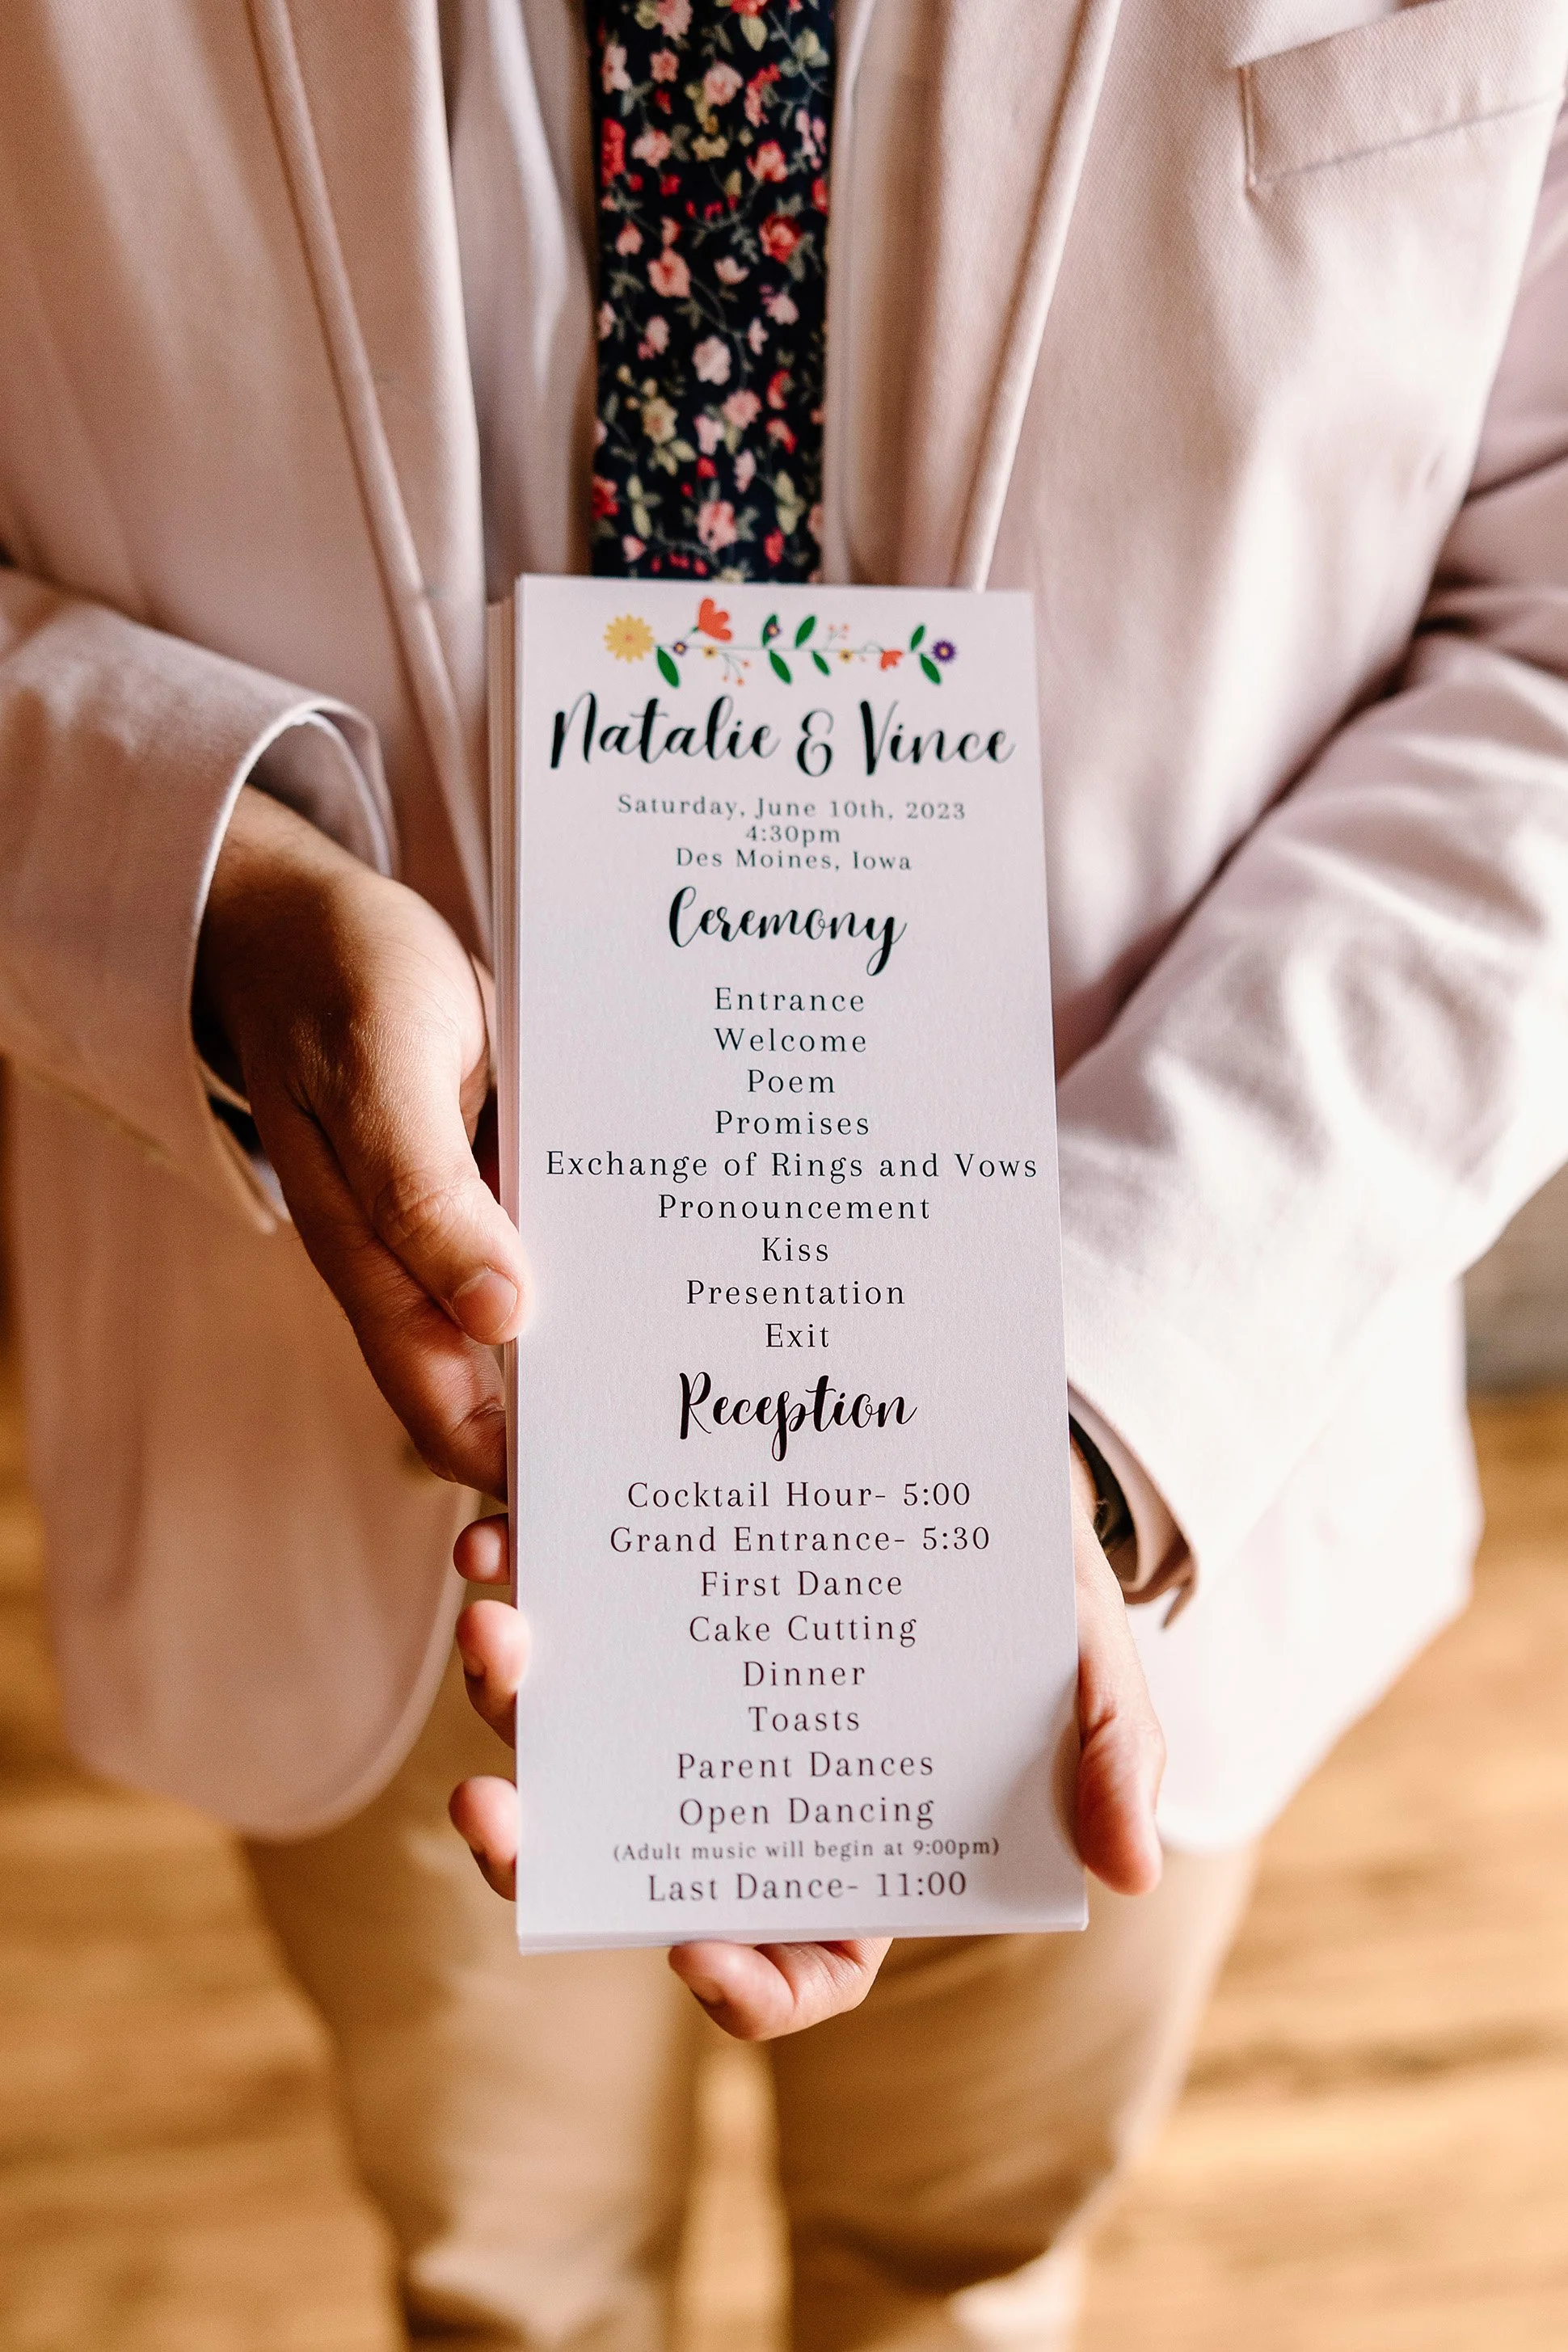 Natalie & Vince
Saturday, June 10th, 2023
4:30pm
Des Moines, Iowa
Ceremony
Entrance
Welcome
Poem
Promises
Exchange of Rings and Vows
Pronouncement
Kiss
Presentation
Exit
Reception
Cocktail Hour- 5:00
Grand Entrance- 5:30
First Dance
Cake Cutting
Dinner
Toasts
Parent Dances
Open Dancing
(Adult music will begin at 9:00pm)
Last Dance- 11:00